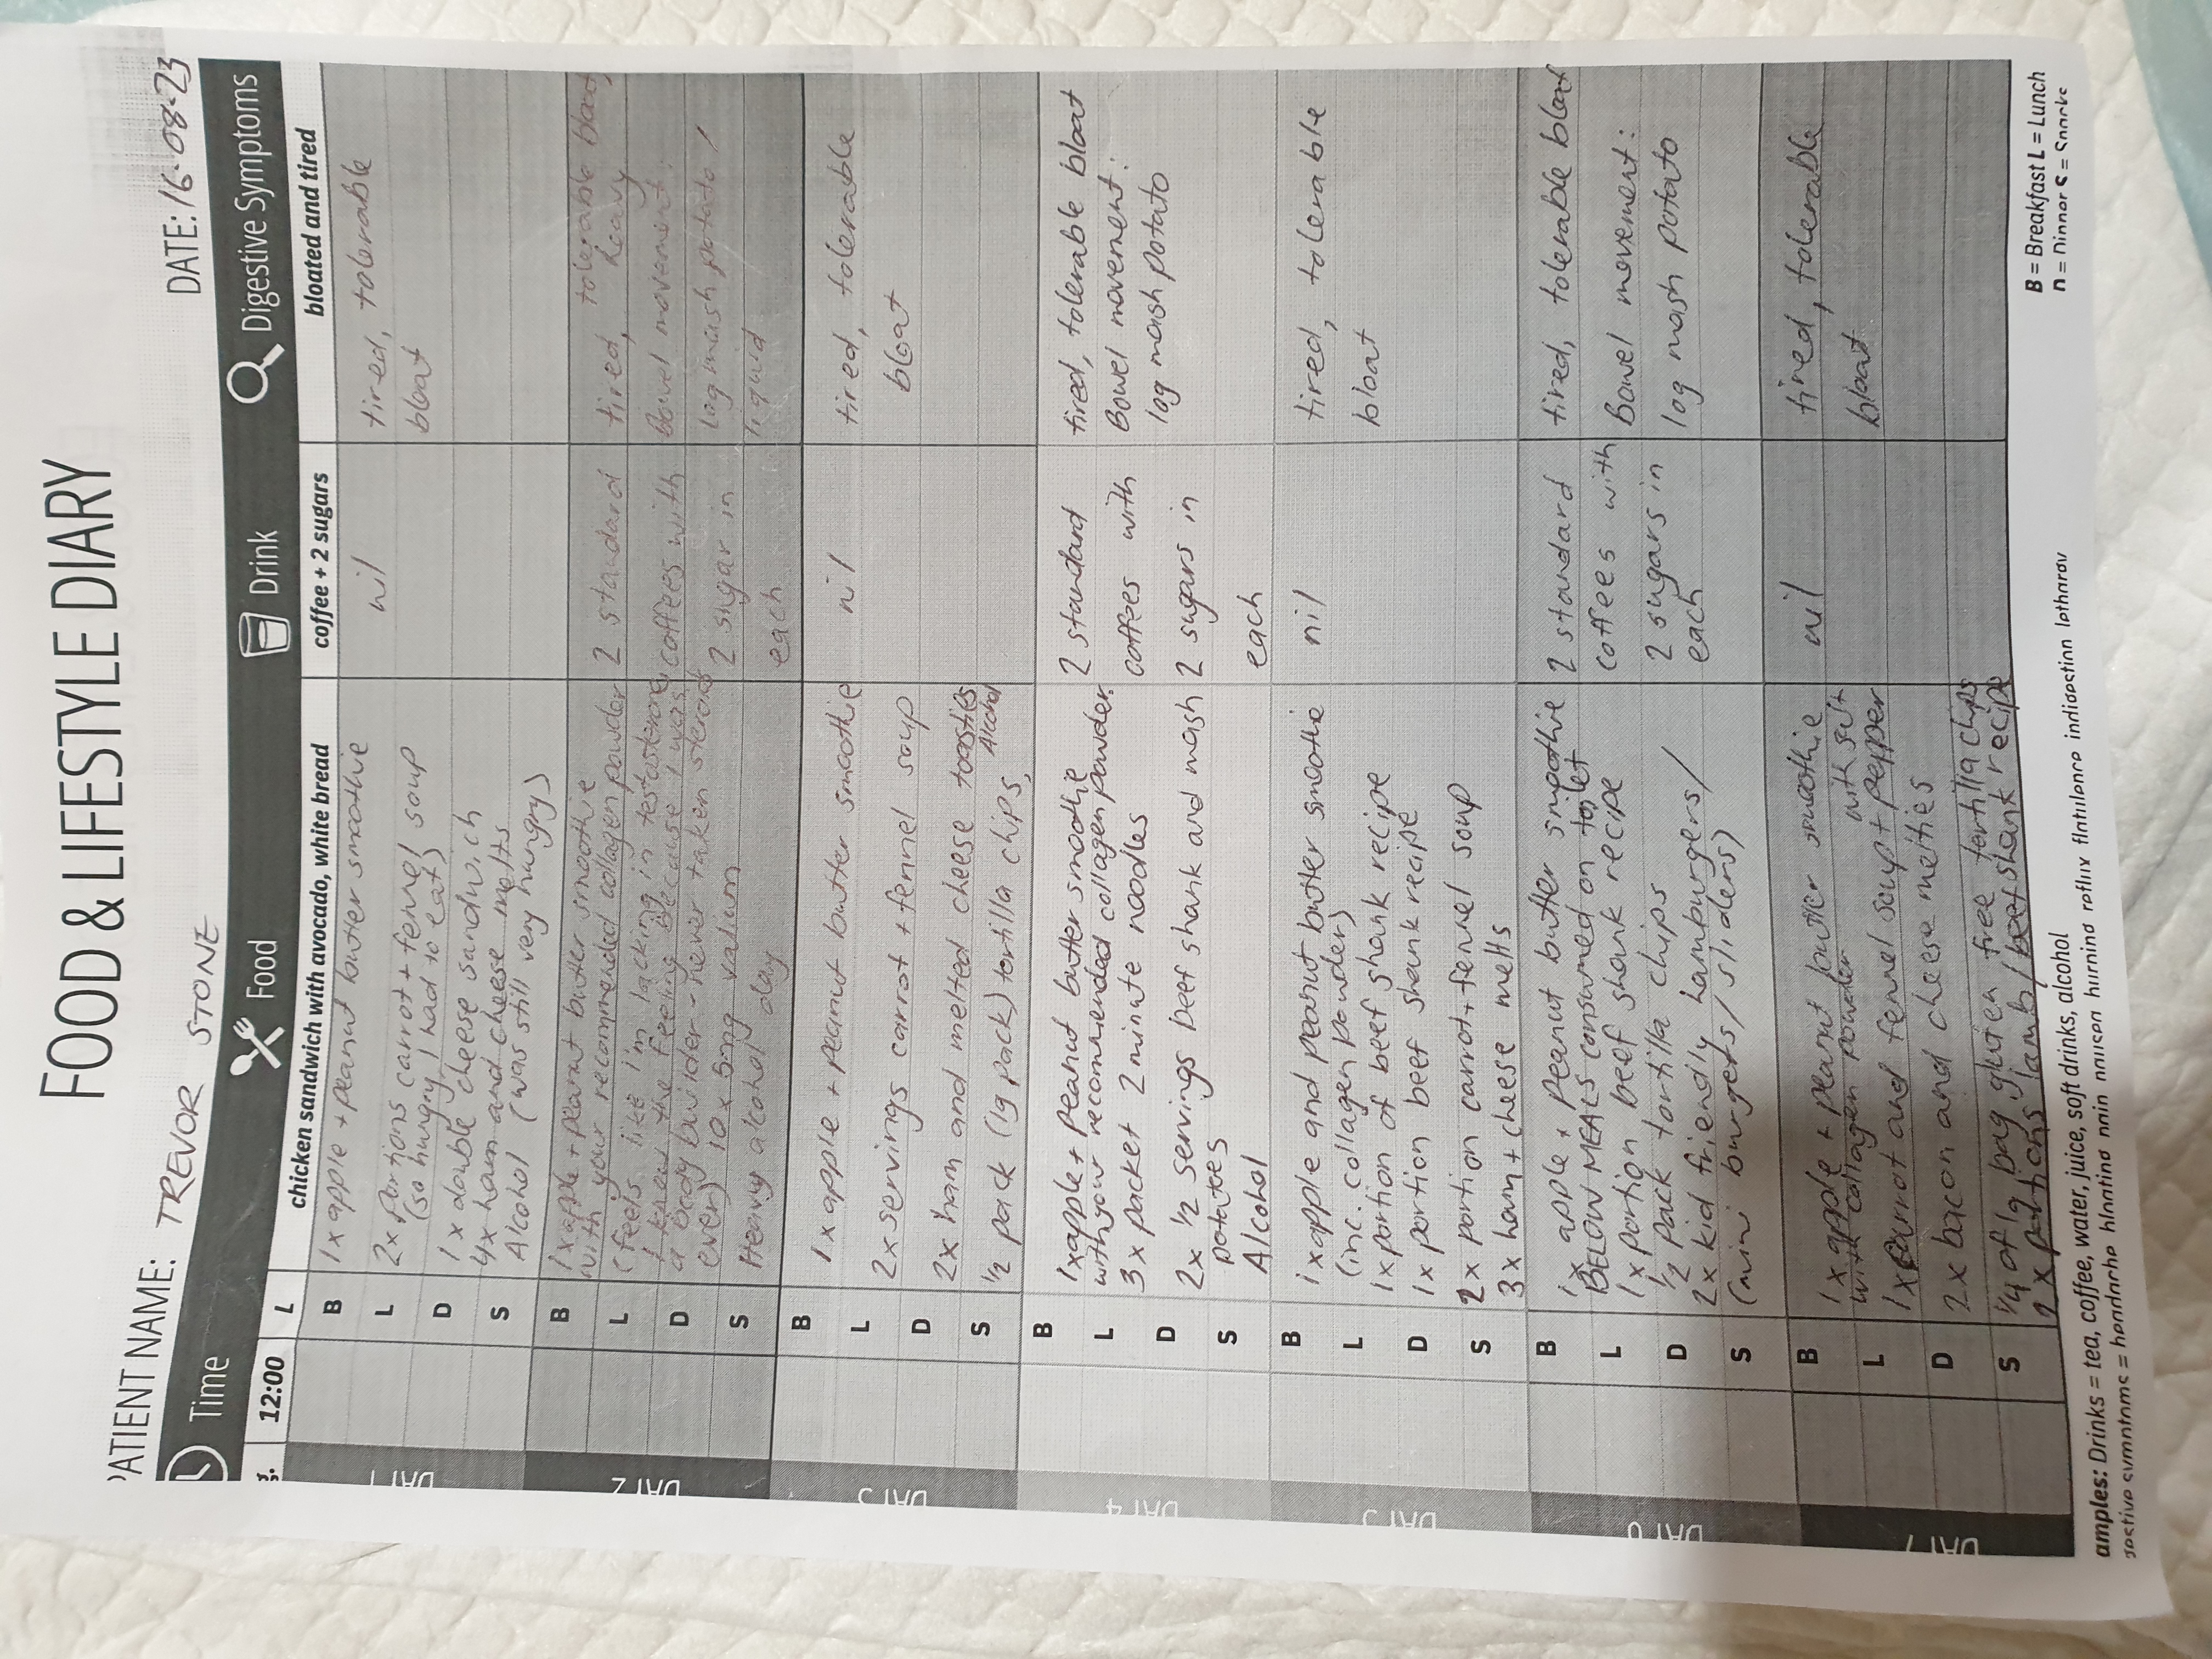 FOOD & LIFESTYLE DIARY
PATIENT NAME: TREVOR STONE DATE: 16-08-23
Time Food Drink Digestive Symptoms
g. 12:00 L chicken sandwich with avocado, white bread coffee + 2 sugars bloated and tired
DAY 1
B 1x apple + peanut butter smoothie
L 2x Portions carrot + fennel soup
(so hungry I had to eat)
D 1x double cheese sandwich
S 4x ham and cheese melts
Alcohol (was still very hungry)
nil
tired, tolerable
bloat
DAY 2
B 1x apple + peanut butter smoothie
with your recommended collagen powder
L (feels like I'm lacking in testosterone
I know the feeling because I was
D a body builder - never taken steroids
ever) 10 x 5mg valium
S Heavy alcohol day
2 standard
coffees with
2 sugar in
each
tired, tolerable bloat,
heavy
Bowel movement:
log mash potato /
liquid
DAY 3
B 1x apple + peanut butter smoothie
L 2x servings carrot + fennel soup
D 2x ham and melted cheese toasties
S 1/2 pack (1g pack) tortilla chips, Alcohol
nil
tired, tolerable
bloat
DAY 4
B 1x apple + peanut butter smoothie
with your recommended collagen powder.
L 3x packet 2 minute noodles
D 2x 1/2 servings beef shank and mash
potatoes
S Alcohol
2 standard
coffees with
2 sugars in
each
tired, tolerable bloat
Bowel movement:
log mash potato
DAY 5
B 1x apple and peanut butter smoothie
(inc. collagen powder)
L 1x portion of beef shank recipe
D 1x portion beef shank recipe
S 2x portion carrot + fennel soup
3x ham + cheese melts
nil
tired, tolerable
bloat
DAY 6
B 1x apple + peanut butter smoothie
BELOW MEALS consumed on toilet
L 1x portion beef shank recipe
1/2 pack tortilla chips
D 2x kid friendly hamburgers /
S (mini burgers / sliders)
2 standard
coffees with
2 sugars in
each
tired, tolerable bloat
Bowel movement:
log mash potato
DAY 7
B 1x apple + peanut butter smoothie
with collagen powder
L 1x carrot and fennel soup with salt + pepper
D 2x bacon and cheese melties
S 1/4 of 1g bag gluten free tortilla chips
2x portions lamb / beef shank recipe
nil
tired, tolerable
bloat
amples: Drinks = tea, coffee, water, juice, soft drinks, alcohol
gestive symptoms = headache bloating pain nausea burning reflux flatulence indigestion lethargy
B = Breakfast L = Lunch
D = Dinner S = Snacks